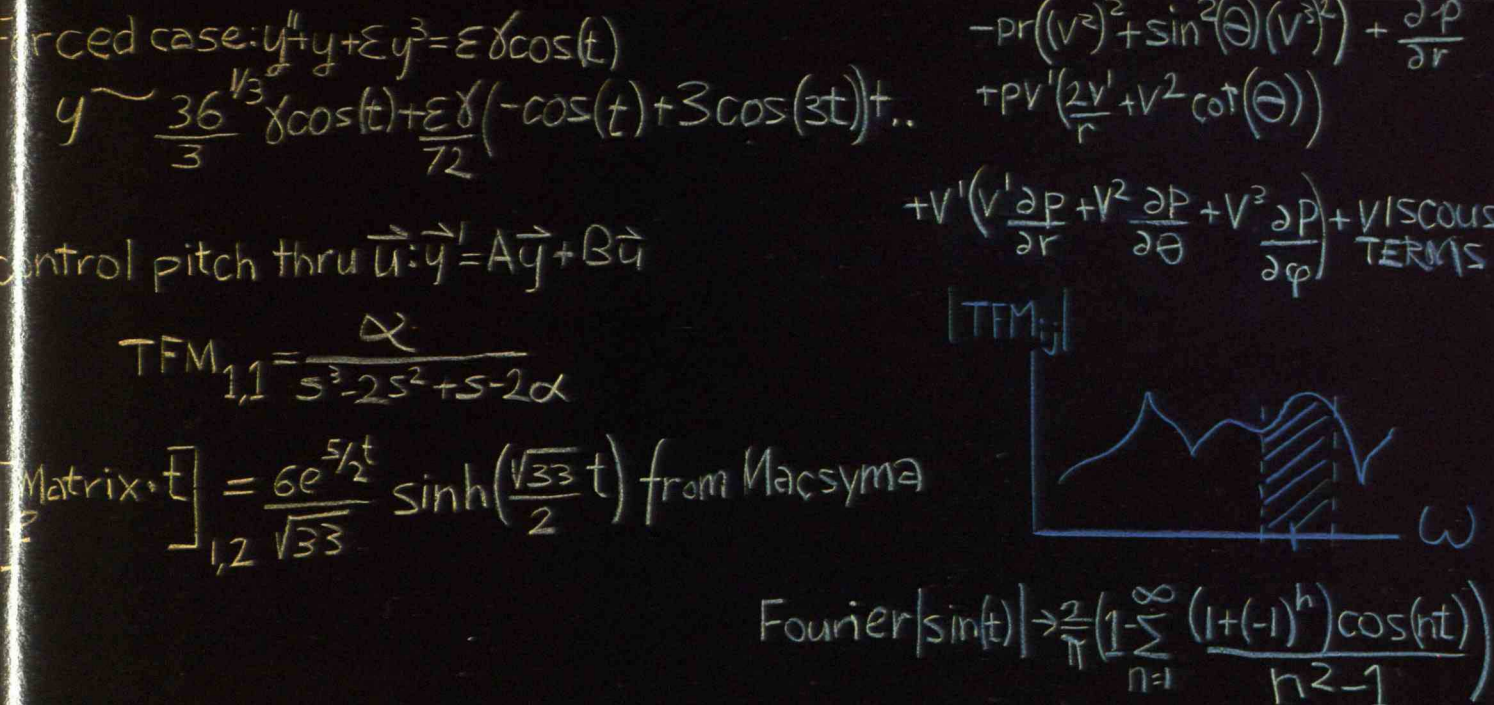 rced case: y"+y+εy³=εγcos(t)
y ~ 36^(1/3)/3 γcos(t)+εγ/72(-cos(t)+3cos(3t))+..
ontrol pitch thru u⃗: y⃗'=Ay⃗+Bu⃗
TFM₁,₁ = α/(s³-2s²+s-2α)
Matrix·t]₁,₂ = 6e^(5/2 t)/√33 sinh(√33/2 t) from Macsyma
-ρr((v²)²+sin²(θ)(v³)²) + ∂p/∂r
+ρv'(2v'/r+v² cot(θ))
+v'(v'∂ρ/∂r+v² ∂ρ/∂θ+v³ ∂ρ/∂φ)+VISCOUS TERMS
|TFMᵢⱼ|
ω
Fourier|sin(t)|→2/π(1-∑_(n=1)^∞ (1+(-1)^n)cos(nt)/(n²-1))